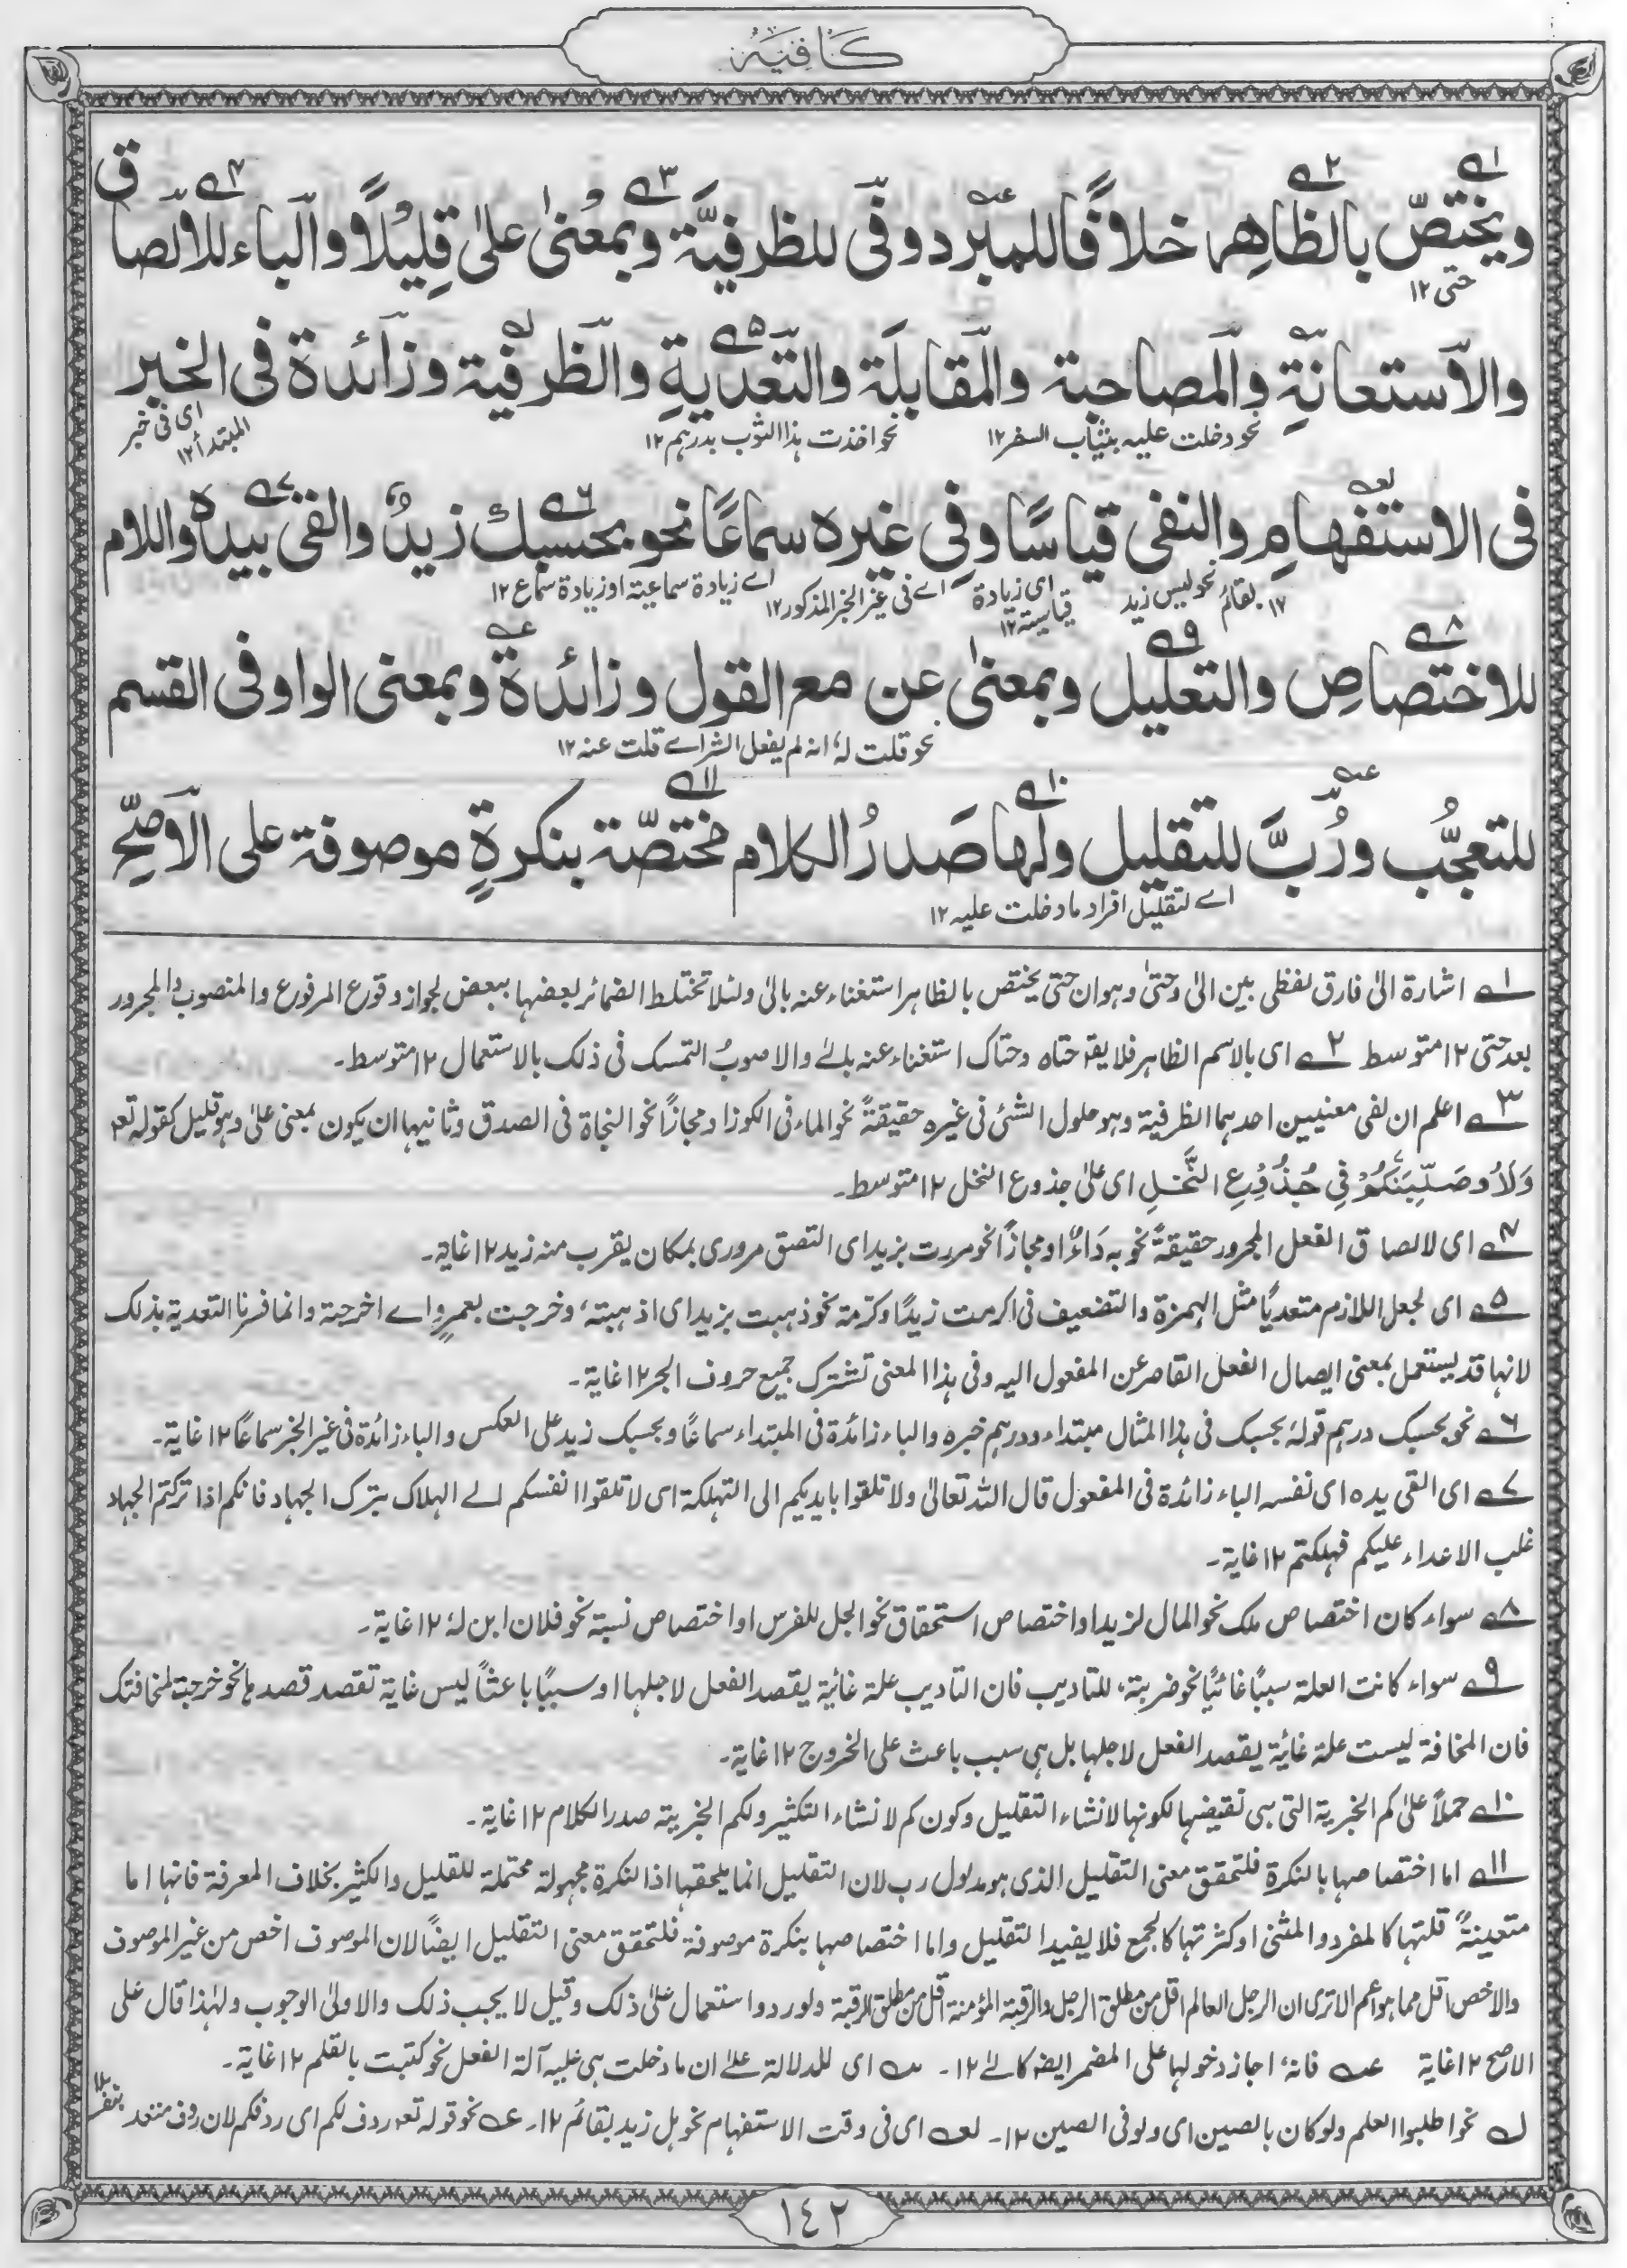 كَافِيَة
ويختصّ بالظاهر خلافًا للمبرّد وفي للظرفيَّة وبمعنىٰ علىٰ قليلًا والباء للالصاق
حتى ١٢
والاستعانةِ والمصاحبة والمقابلة والتعديةِ والظرفية وزائدة في الخبر
نحو دخلت عليه بثياب السفر ١٢
نحو اخذت هذا الثوب بدرهم ١٢
اى فى خبر المبتدأ ١٢
فى الاستفهامِ والنفى قياسًا وفى غيره سماعًا نحو بحسبك زيدٌ والقى بيده واللام
نحو ليس زيد بقائم ١٢
اى زيادة قياسية ١٢
اے فى غير الخبر المذكور ١٢
اے زيادة سماعية او زيادة سماع ١٢
للاختصاصِ والتعليل وبمعنىٰ عن مع القول وزائدة وبمعنى الواو فى القسم
نحو قلت لهٗ انه لم يفعل الشر اے قلت عنه ١٢
للتعجُّب ورُبَّ للتقليل ولها صَدرُ الكلام مختصّة بنكرةٍ موصوفة على الأصحّ
اے لتقليل افراد ما دخلت عليه ١٢
١ے اشارة الىٰ فارق لفظى بين الىٰ وحتىٰ وهو ان حتى يختص بالظاهر استغناء عنه بالىٰ ولئلا تختلط الضمائر بعضها ببعض لجواز وقوع المرفوع والمنصوب والمجرور
بعد حتى ١٢ متوسط ٢ے اى بالاسم الظاهر فلا يقه حتاه وحتاك استغناء عنه بالے والاصوب التمسك فى ذلك بالاستعمال ١٢ متوسط۔
٣ے اعلم ان لفى معنيين احدهما الظرفية وهو حلول الشئ فى غيره حقيقةً نحو الماء فى الكوز او مجازًا نحو النجاة فى الصدق وثانيها ان يكون بمعنى علىٰ وهو قليل كقوله تعه
وَلَاُوصَلِّبَنَّكُمْ فِي جُذُوْعِ النَّخْلِ اى علىٰ جذوع النخل ١٢ متوسط۔
٤ے اى لالصاق الفعل المجرور حقيقةً نحو به دَاءٌ او مجازًا نحو مررت بزيد اى التصق مرورى بمكان يقرب منه زيد ١٢ غاية۔
٥ے اى لجعل اللازم متعديًا مثل الهمزة والتضعيف فى اكرمت زيدًا وكرّمته نحو ذهبت بزيد اى اذهبته، وخرجت بعمرٍو اے اخرجته وانما فسرنا التعدية بذلك
لانها قد يستعمل بمعنى ايصال الفعل القاصر عن المفعول اليه وفى هذا المعنى تشترك جميع حروف الجر ١٢ غاية۔
٦ے نحو بحسبك درهم قولهٗ بحسبك فى هذا المثال مبتداء ودرهم خبره والباء زائدة فى المبتداء سماعًا وبحسبك زيد على العكس والباء زائدة فى غير الخبر سماعًا ١٢ غاية۔
٧ے اى القى يده اى نفسه الباء زائدة فى المفعول قال الله تعالىٰ ولا تلقوا بايديكم الى التهلكة اى لا تلقوا انفسكم الے الهلاك بترك الجهاد فانكم اذا تركتم الجهاد
غلب الاعداء عليكم فهلكتم ١٢ غاية۔
٨ے سواء كان اختصاص ملك نحو المال لزيد او اختصاص استحقاق نحو الجل للفرس او اختصاص نسبة نحو فلان ابن لهٗ ١٢ غاية۔
٩ے سواء كانت العلة سببًا غائيًا نحو ضربته، للتاديب فان التاديب علة غائية يقصد الفعل لاجلها او سببًا باعثًا ليس غاية تقصد قصدها نحو خرجت لمخافتك
فان المخافة ليست علة غائية يقصد الفعل لاجلها بل هى سبب باعث على الخروج ١٢ غاية۔
١٠ے حملًا علىٰ كم الخبرية التى هى نقيضها لكونها لانشاء التقليل وكون كم لانشاء التكثير ولكم الخبرية صدر الكلام ١٢ غاية۔
١١ے اما اختصاصها بالنكرة فلتحقق معنى التقليل الذى هو مدلول رب لان التقليل انما يلحقها اذا النكرة مجهولة محتملة للقليل والكثير بخلاف المعرفة فانها اما
متعينةٌ قلتها كالمفرد والمثنىٰ او كثرتها كالجمع فلا يفيد التقليل واما اختصاصها بنكرة موصوفة فلتحقق معنى التقليل ايضًا لان الموصوف اخص من غير الموصوف
والاخص اقل مما هو اعم الا ترى ان الرجل العالم اقل من مطلق الرجل والرقبة المؤمنة اقل من مطلق الرقبة ولورود استعمال علىٰ ذلك وقيل لا يجب ذلك والاولىٰ الوجوب ولهٰذا قال على
الاصح ١٢ غاية عـه فانهٗ اجاز دخولها على المضمر ايضه كالےٰ ١٢۔ مـه اى للدلالة علےٰ ان ما دخلت هى عليه آلة الفعل نحو كتبت بالقلم ١٢ غاية۔
لـه نحو اطلبوا العلم ولو كان بالصين اى ولو فى الصين ١٢۔ لعـه اى فى وقت الاستفهام نحو هل زيد بقائم ١٢۔ عـه نحو قوله تعه ردف لكم اى ردفكم لان ردف متعد بنفسه ١٢
١٤٢